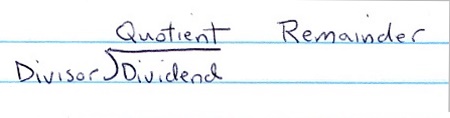 Quotient Remainder
Divisor)Dividend